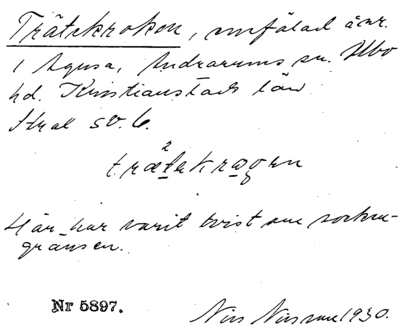 Trätekroken, omfälad äng.
i Agusa, Andrarums sn. Albo
hd. Kristianstads län.
Skal SV. 6.
trætəkrogən
Här har varit tvist om socken-
gränsen.
Nr 5897.
Nils Nilsson 1930.